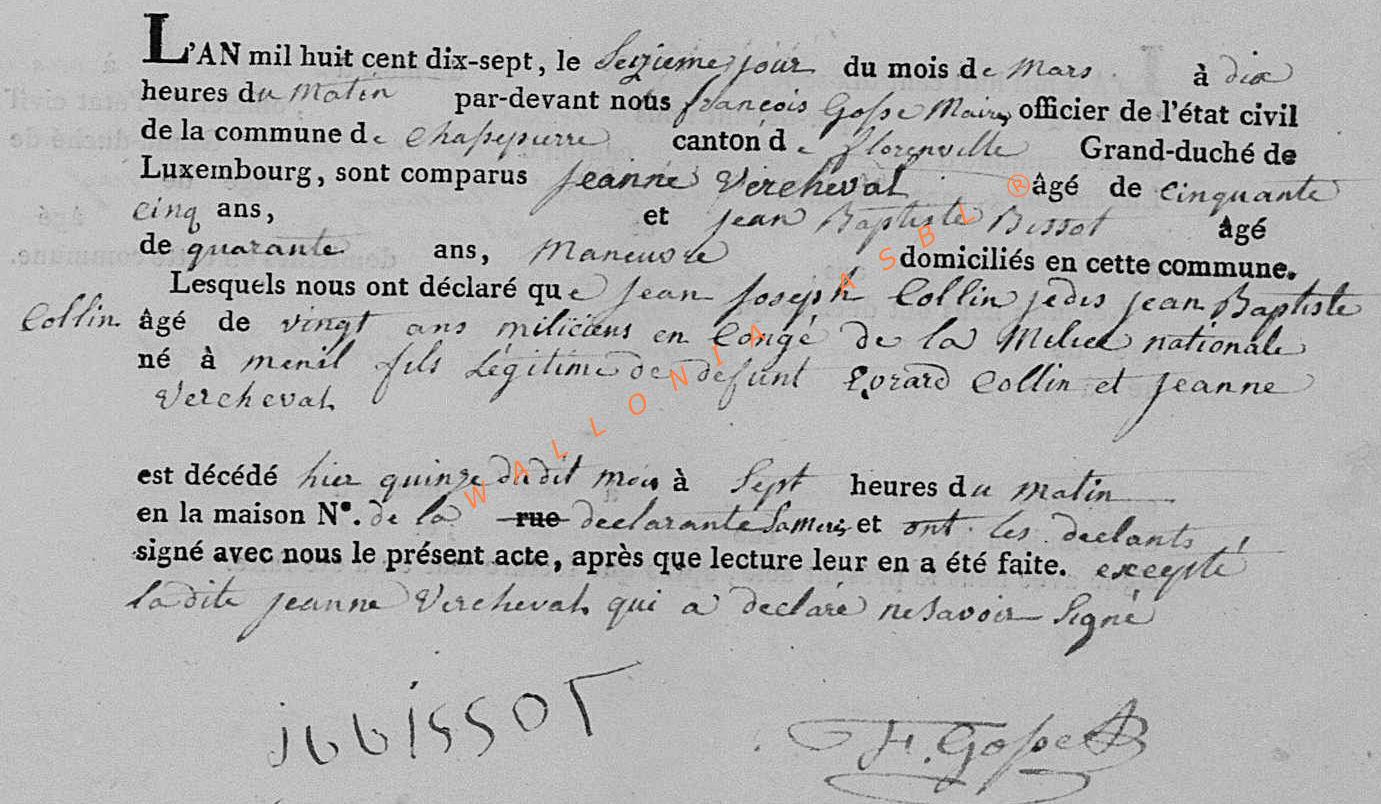 L'AN mil huit cent dix-sept, le Seizieme jour du mois de Mars à dix
heures du Matin par-devant nous françois Gosse Maire, officier de l'état civil
de la commune de Chassepierre canton de florenville Grand-duché de
Luxembourg, sont comparus Jeanne Vercheval âgé de Cinquante
Cinq ans, et Jean Baptiste Bissot âgé
de quarante ans, Maneuvre domiciliés en cette commune.
Lesquels nous ont déclaré que Jean Joseph Collin je dis Jean Baptiste
Collin âgé de vingt ans miliciens en Congé de la Milice nationale
né à menil fils Légitime de defunt Evrard Collin et Jeanne
Vercheval
est décédé hier quinze dudit mois à Sept heures du matin
en la maison N°. de la rue declarante Sa Mere, et ont les declants
signé avec nous le présent acte, après que lecture leur en a été faite. excepté
ladite Jeanne Vercheval qui a declaré ne Savoir Signé
jbbissot F. Gosse
WALLONIA ASBL ®